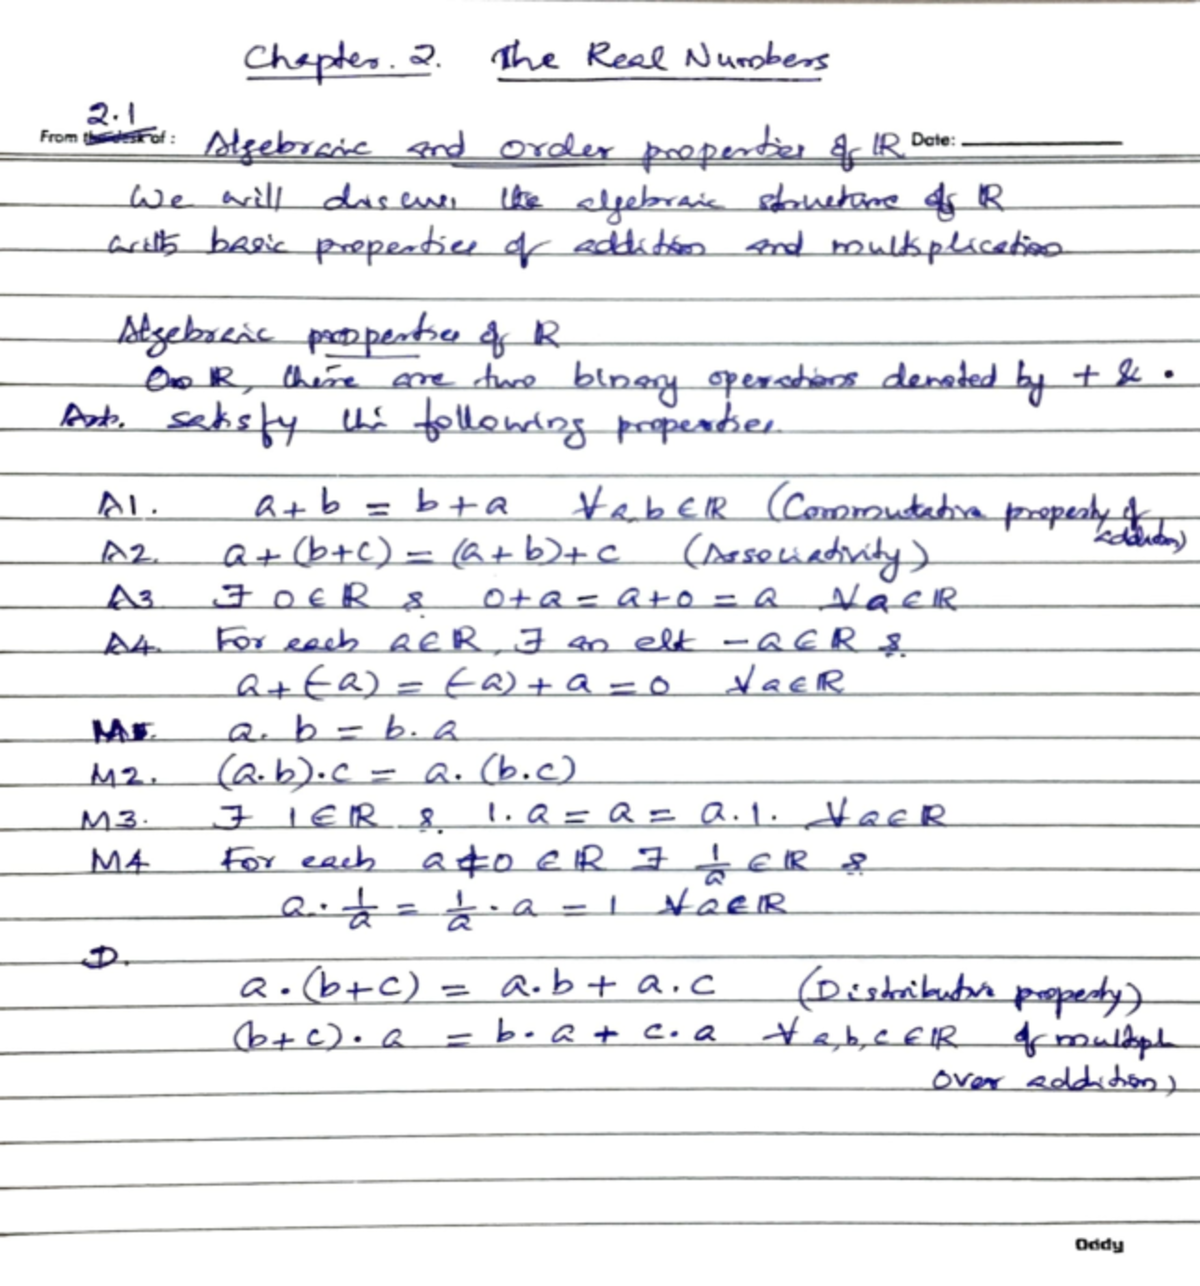 Chapter. 2. The Real Numbers
2.1
From the desk of : Algebraic and order properties of ℝ Date:
We will discuss the algebraic structure of ℝ
with basic properties of addition and multiplication
Algebraic properties of ℝ
On ℝ, there are two binary operations denoted by + & •
satisfy the following properties.
A1. a+b = b+a ∀ a,b ∈ ℝ (Commutative property of addition)
A2. a+(b+c) = (a+b)+c (Associativity)
A3 ∃ 0 ∈ ℝ 0+a = a+0 = a ∀ a ∈ ℝ
A4. For each a ∈ ℝ, ∃ an elt -a ∈ ℝ
a+(-a) = (-a)+a = 0 ∀ a ∈ ℝ
M1. a. b = b. a
M2. (a.b).c = a. (b.c)
M3. ∃ 1 ∈ ℝ 1. a = a = a.1. ∀ a ∈ ℝ
M4 For each a≠0 ∈ ℝ ∃ 1/a ∈ ℝ
a. 1/a = 1/a . a = 1 ∀ a ∈ ℝ
D.
a.(b+c) = a.b + a.c (Distributive property)
(b+c). a = b.a + c.a ∀ a,b,c ∈ ℝ of multipl
over addition)
Oddy